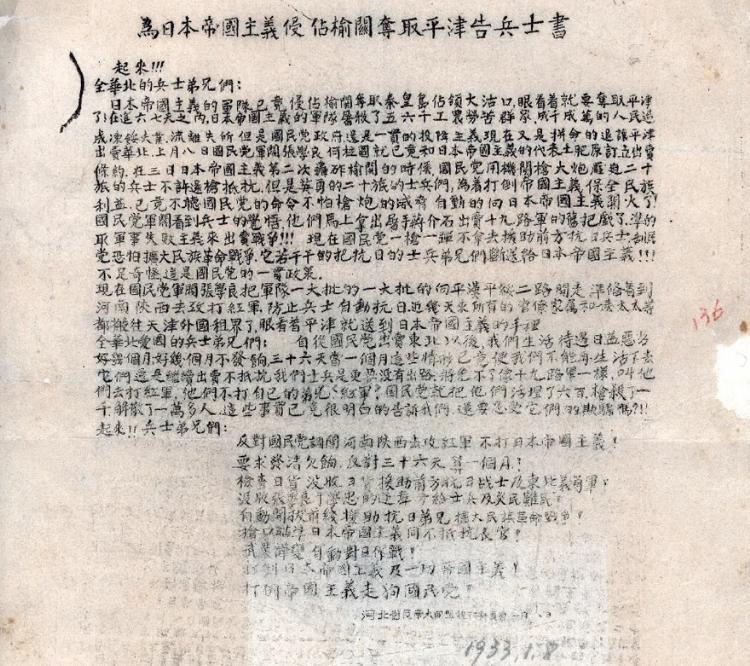 為日本帝國主義侵佔榆關奪取平津告兵士書
起來!!!
全華北的兵士弟兄們：
日本帝國主義的軍隊,已竟侵佔榆關奪取秦皇島佔領大沽口,眼看着就要奪取平津
了!在這六七天之內,日本帝國主義的軍隊屠殺了五六千工農勞苦群眾,成千成萬的人民
流離失所但是國民党政府還是一貫的投降主義現在又是拼命的退讓平津
出賣華北,上月八日國民党軍閥張學良何柱國就已竟和日本帝國主義的代表土肥原訂立出賣
條約,在三日日本帝國主義第二次轟炸榆關的時候,國民党用機關槍大炮壓迫二十
旅的兵士不許還槍抵抗,但是英勇的二十旅的士兵們,為着打倒帝國主義,保全民族
利益,已竟不聽國民党的命令不怕槍炮的威脅自動的向日本帝國主義開火了!
國民党軍閥看到兵士的覺悟,他們馬上拿出蔣介石出賣十九路軍的舊把戲了,準的
取軍事失敗主義來出賣戰爭!!!現在國民党一槍一彈不拿去援助前方抗日兵士,
党恐怕擴大民族革命戰爭,它若干干的把抗日的士兵弟兄們斷送給日本帝國主義!!!
不足奇怪這是國民党的一貫政策.
現在國民党軍閥張學良把軍隊一大批的一大批的向平漢平綏二路開走準備着到
河南陝西去攻打紅軍,防止兵士自動抗日,近幾天來所有的官僚家屬和太太
都搬往天津外國租界了,眼看着平津就送到日本帝國主義的手裡
全華北愛國的兵士弟兄們： 自從國民党出賣東北以後,我們生活待遇日益惡劣
好幾個月好幾個月不發餉三十六天當一個月這些情形已竟使我們不能再生活下去
它們還是繼續出賣不抵抗,我們士兵是更要沒有出路,將免不了像十九路軍一樣,叫他
們去打紅軍,他們不打自己的弟兄(紅軍)?國民党就把他們活埋了六百,槍殺了一
千解散了一萬多人,這些事實已竟很明白的告訴我們,還要忍受它們的欺騙嗎?!!
起來!!兵士弟兄們：
反對國民党調開河南陝西去攻紅軍不打日本帝國主義!
要求終清欠餉,反對三十六天算一個月!
檢查日貨沒收日貨援助前方抗日战士及東北義勇軍!
沒收張學良丁學忠的 士兵及災民難民!
自動開拔前綫援助抗日弟兄擴大民族革命戰爭!
槍口 日本帝國主義向不抵抗長官!
武裝譁變自動對日作戰!
打倒日本帝國主義及一切帝國主義!
打倒帝國主義走狗國民党!
河北
1933.1.8
136